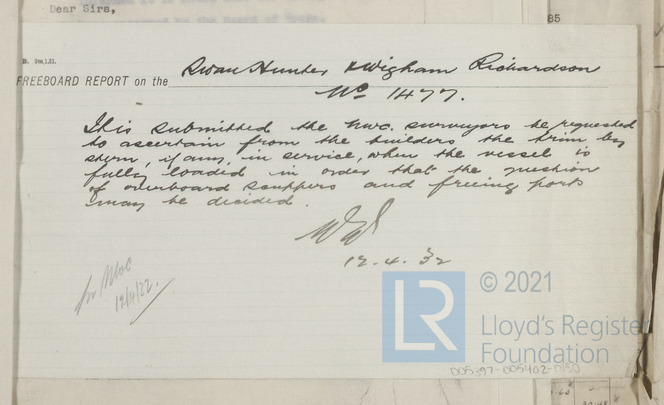 Dear Sirs,
85
FREEBOARD REPORT on the Swan Hunter & Wigham Richardson
No 1477.
It is submitted the Nwc. surveyors be requested
to ascertain from the builders the trim by
stern, if any, in service, when the vessel is
fully loaded in order that the question
of overboard scuppers and freeing ports
may be decided.
12.4.32
12/4/32.
LR
© 2021
Lloyd's Register
Foundation